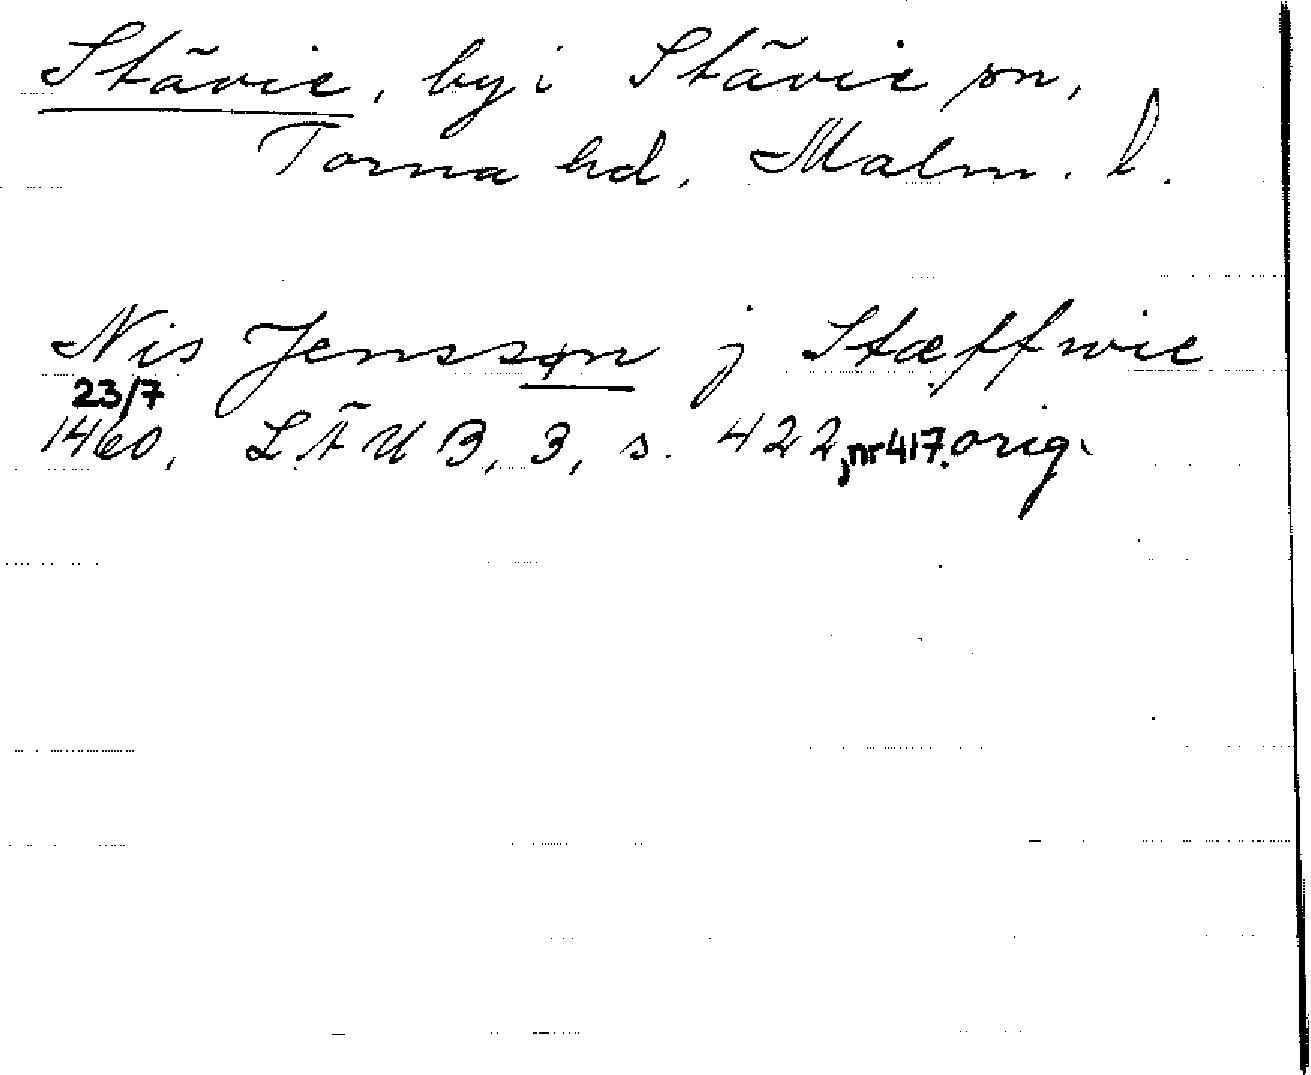 Stävie, by i Stävie sn,
Torna hd, Malm. l.
Nis Jenssøn j Stæffwie
23/7
1460, LÄUB, 3, s. 422, nr 417. orig.